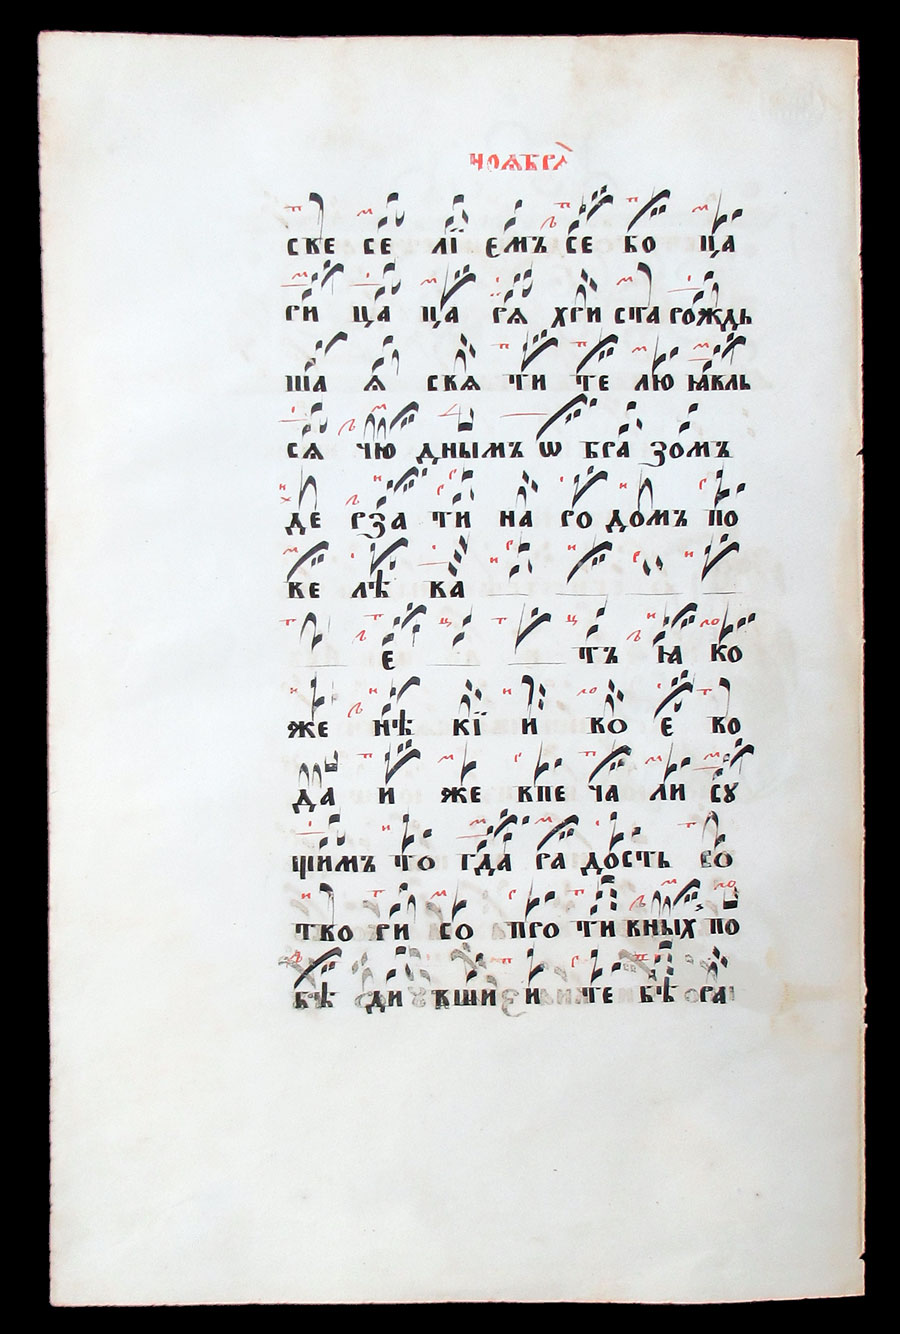 ноѧбрѧ
ске се лї емъ се бо ца
ри ца ца рѧ хри ста рождь
ша ѧ скѧ ти те лю ꙗкль
сѧ чю днымъ ѡ бра зомъ
де рза ти на ро домъ по
ке лѣ ка
е тъ ꙗ ко
же нѣ кї и ко е ко
да и же кпе ча ли су
щимъ то гда ра дость со
тко ри со про ти кных по
бѣ ди кши и те бѣ ра